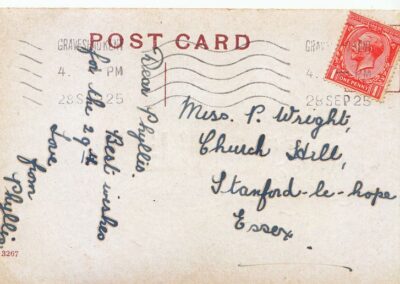 POST CARD
GRAVESEND KENT
4. PM
28 SEP 25
GRAVES
4. PM
28 SEP 25
ONE PENNY
Dear Phyllis.
Best wishes
for the 29th
Love
from
Phyllis
Miss. P. Wright,
Church Hill,
Stanford-le-hope
Essex
3267